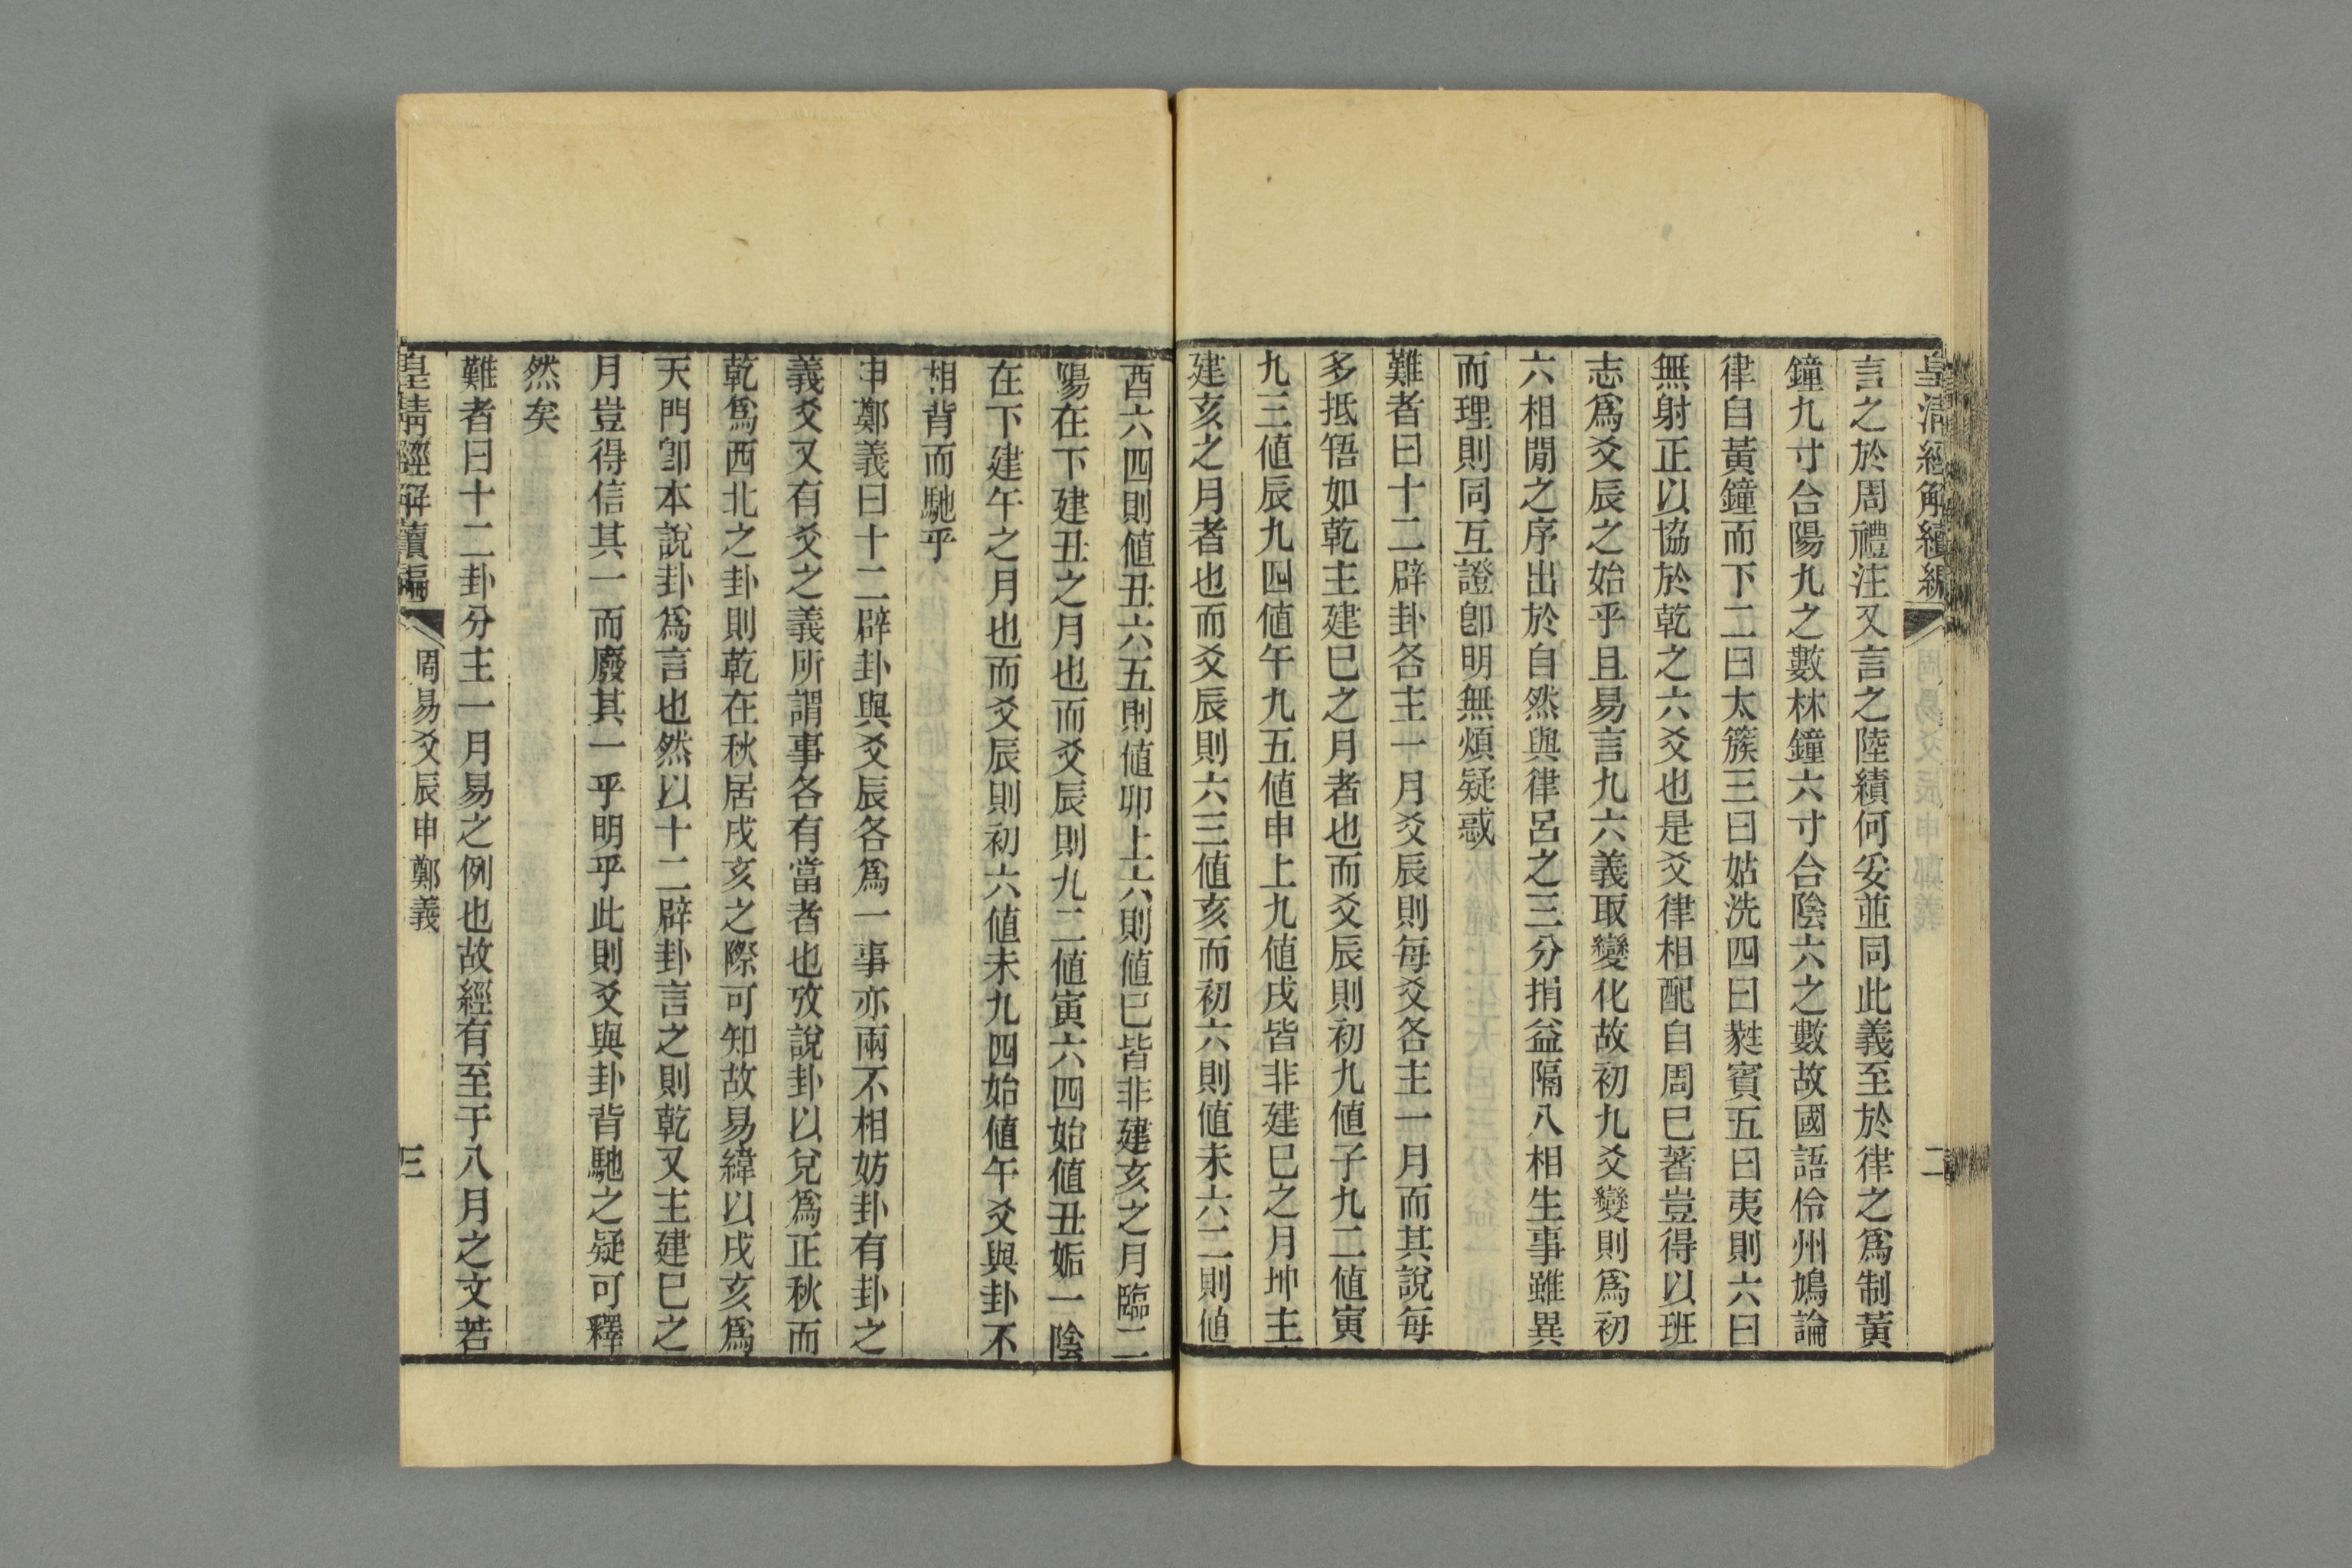 皇清經解續編
二
言之於周禮注又言之陸績何妥並同此義至於律之爲制黃
鐘九寸合陽九之數林鐘六寸合陰六之數故國語伶州鳩論
律自黃鐘而下二曰太簇三曰姑洗四曰蕤賓五曰夷則六曰
無射正以協於乾之六爻也是爻律相配自周已著豈得以班
志爲爻辰之始乎且易言九六義取變化故初九爻變則爲初
六相閒之序出於自然與律呂之三分損益隔八相生事雖異
而理則同互證卽明無煩疑惑
難者曰十二辟卦各主一月爻辰則每爻各主一月而其說每
多抵牾如乾主建巳之月者也而爻辰則初九値子九二値寅
九三値辰九四値午九五値申上九値戌皆非建巳之月坤主
建亥之月者也而爻辰則六三値亥而初六則値未六二則値
酉六四則値丑六五則値卯上六則値巳皆非建亥之月臨二
陽在下建丑之月也而爻辰則九二値寅六四始値丑姤一陰
在下建午之月也而爻辰則初六値未九四始値午爻與卦不
相背而馳乎
申鄭義曰十二辟卦與爻辰各爲一事亦兩不相妨卦有卦之
義爻又有爻之義所謂事各有當者也攷說卦以兌爲正秋而
乾爲西北之卦則乾在秋居戌亥之際可知故易緯以戌亥爲
天門卽本說卦爲言也然以十二辟卦言之則乾又主建巳之
月豈得信其一而廢其一乎明乎此則爻與卦背馳之疑可釋
然矣
難者曰十二卦分主一月易之例也故經有至于八月之文若
皇清經解續編
周易爻辰申鄭義
三